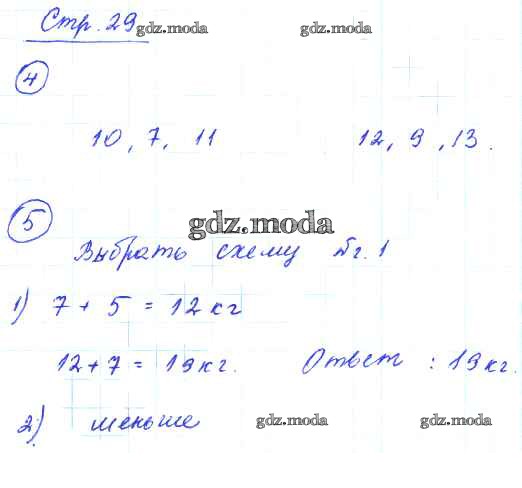 Стр. 29 gdz.moda gdz.moda
4
10, 7, 11 12, 9, 13.
5 gdz.moda
Выбрать схему г. 1
1) 7 + 5 = 12 кг
12 + 7 = 19 кг. Ответ : 19 кг.
2) меньше gdz.moda gdz.moda